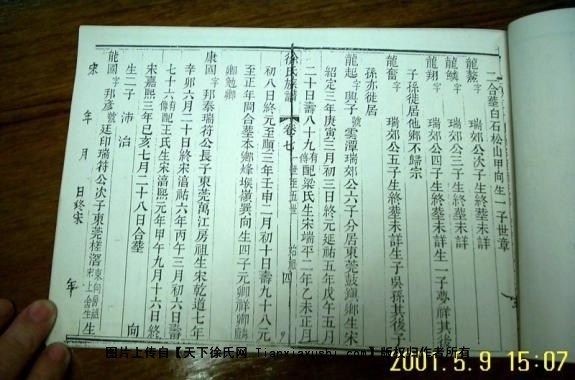 二合塟白石松山甲向生一子世章
龍驁字 瑞郊公次子生終塟未詳
龍鱗字 瑞郊公三子生終塟未詳
龍翔字 瑞郊公四子生終塟未詳生一子夢祥其後
子孫徒居他鄉不歸宗
龍奮字 瑞郊公五子生終塟未詳生子吳孫其後子
孫亦徒居
龍起字興子號雲潭瑞郊公六子分居東莞鼓鎮鄉生宋
紹定三年庚寅三月初三日終元延祐五年戊午五月
二十日壽八十九有傳配梁氏生宋端平二年乙未正月
徐氏族譜 卷七 一世至五世 四
初八日終元至順三年壬申二月初十日壽九十八元
至正年間合塟本鄉烽堠嶺巽向生四子元卿祥卿麟
卿勉卿
康國字邦泰瑞符公長子東莞萬江房祖生宋乾道七年
辛卯六月二十日終宋淳祐六年丙午三月初六日壽
七十六有傳配王氏生宋淳熙元年甲午九月十六日終
宋嘉熙三年己亥七月二十八日合塟 向
生二子沛治
能國字邦彥號廷印瑞符公次子東莞槎滘 生
宋 年 月 日終宋 年
图片上传自【天下徐氏网 Tianxiaxushi.com】版权归作者所有
2001.5.9 15:07